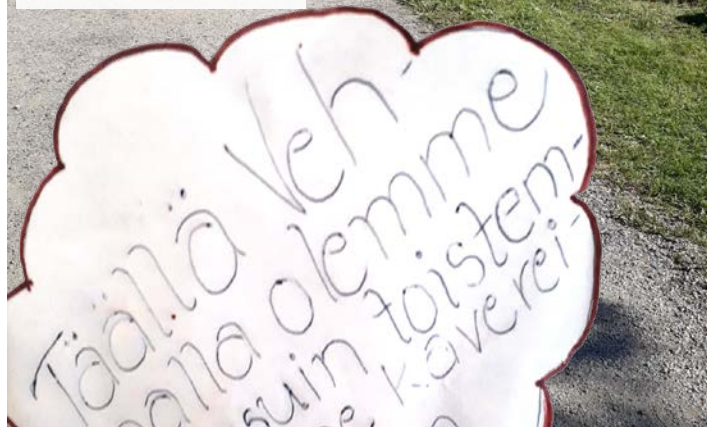 Täällä Veh-
alla olemme
suin toistem-
e kaverei-